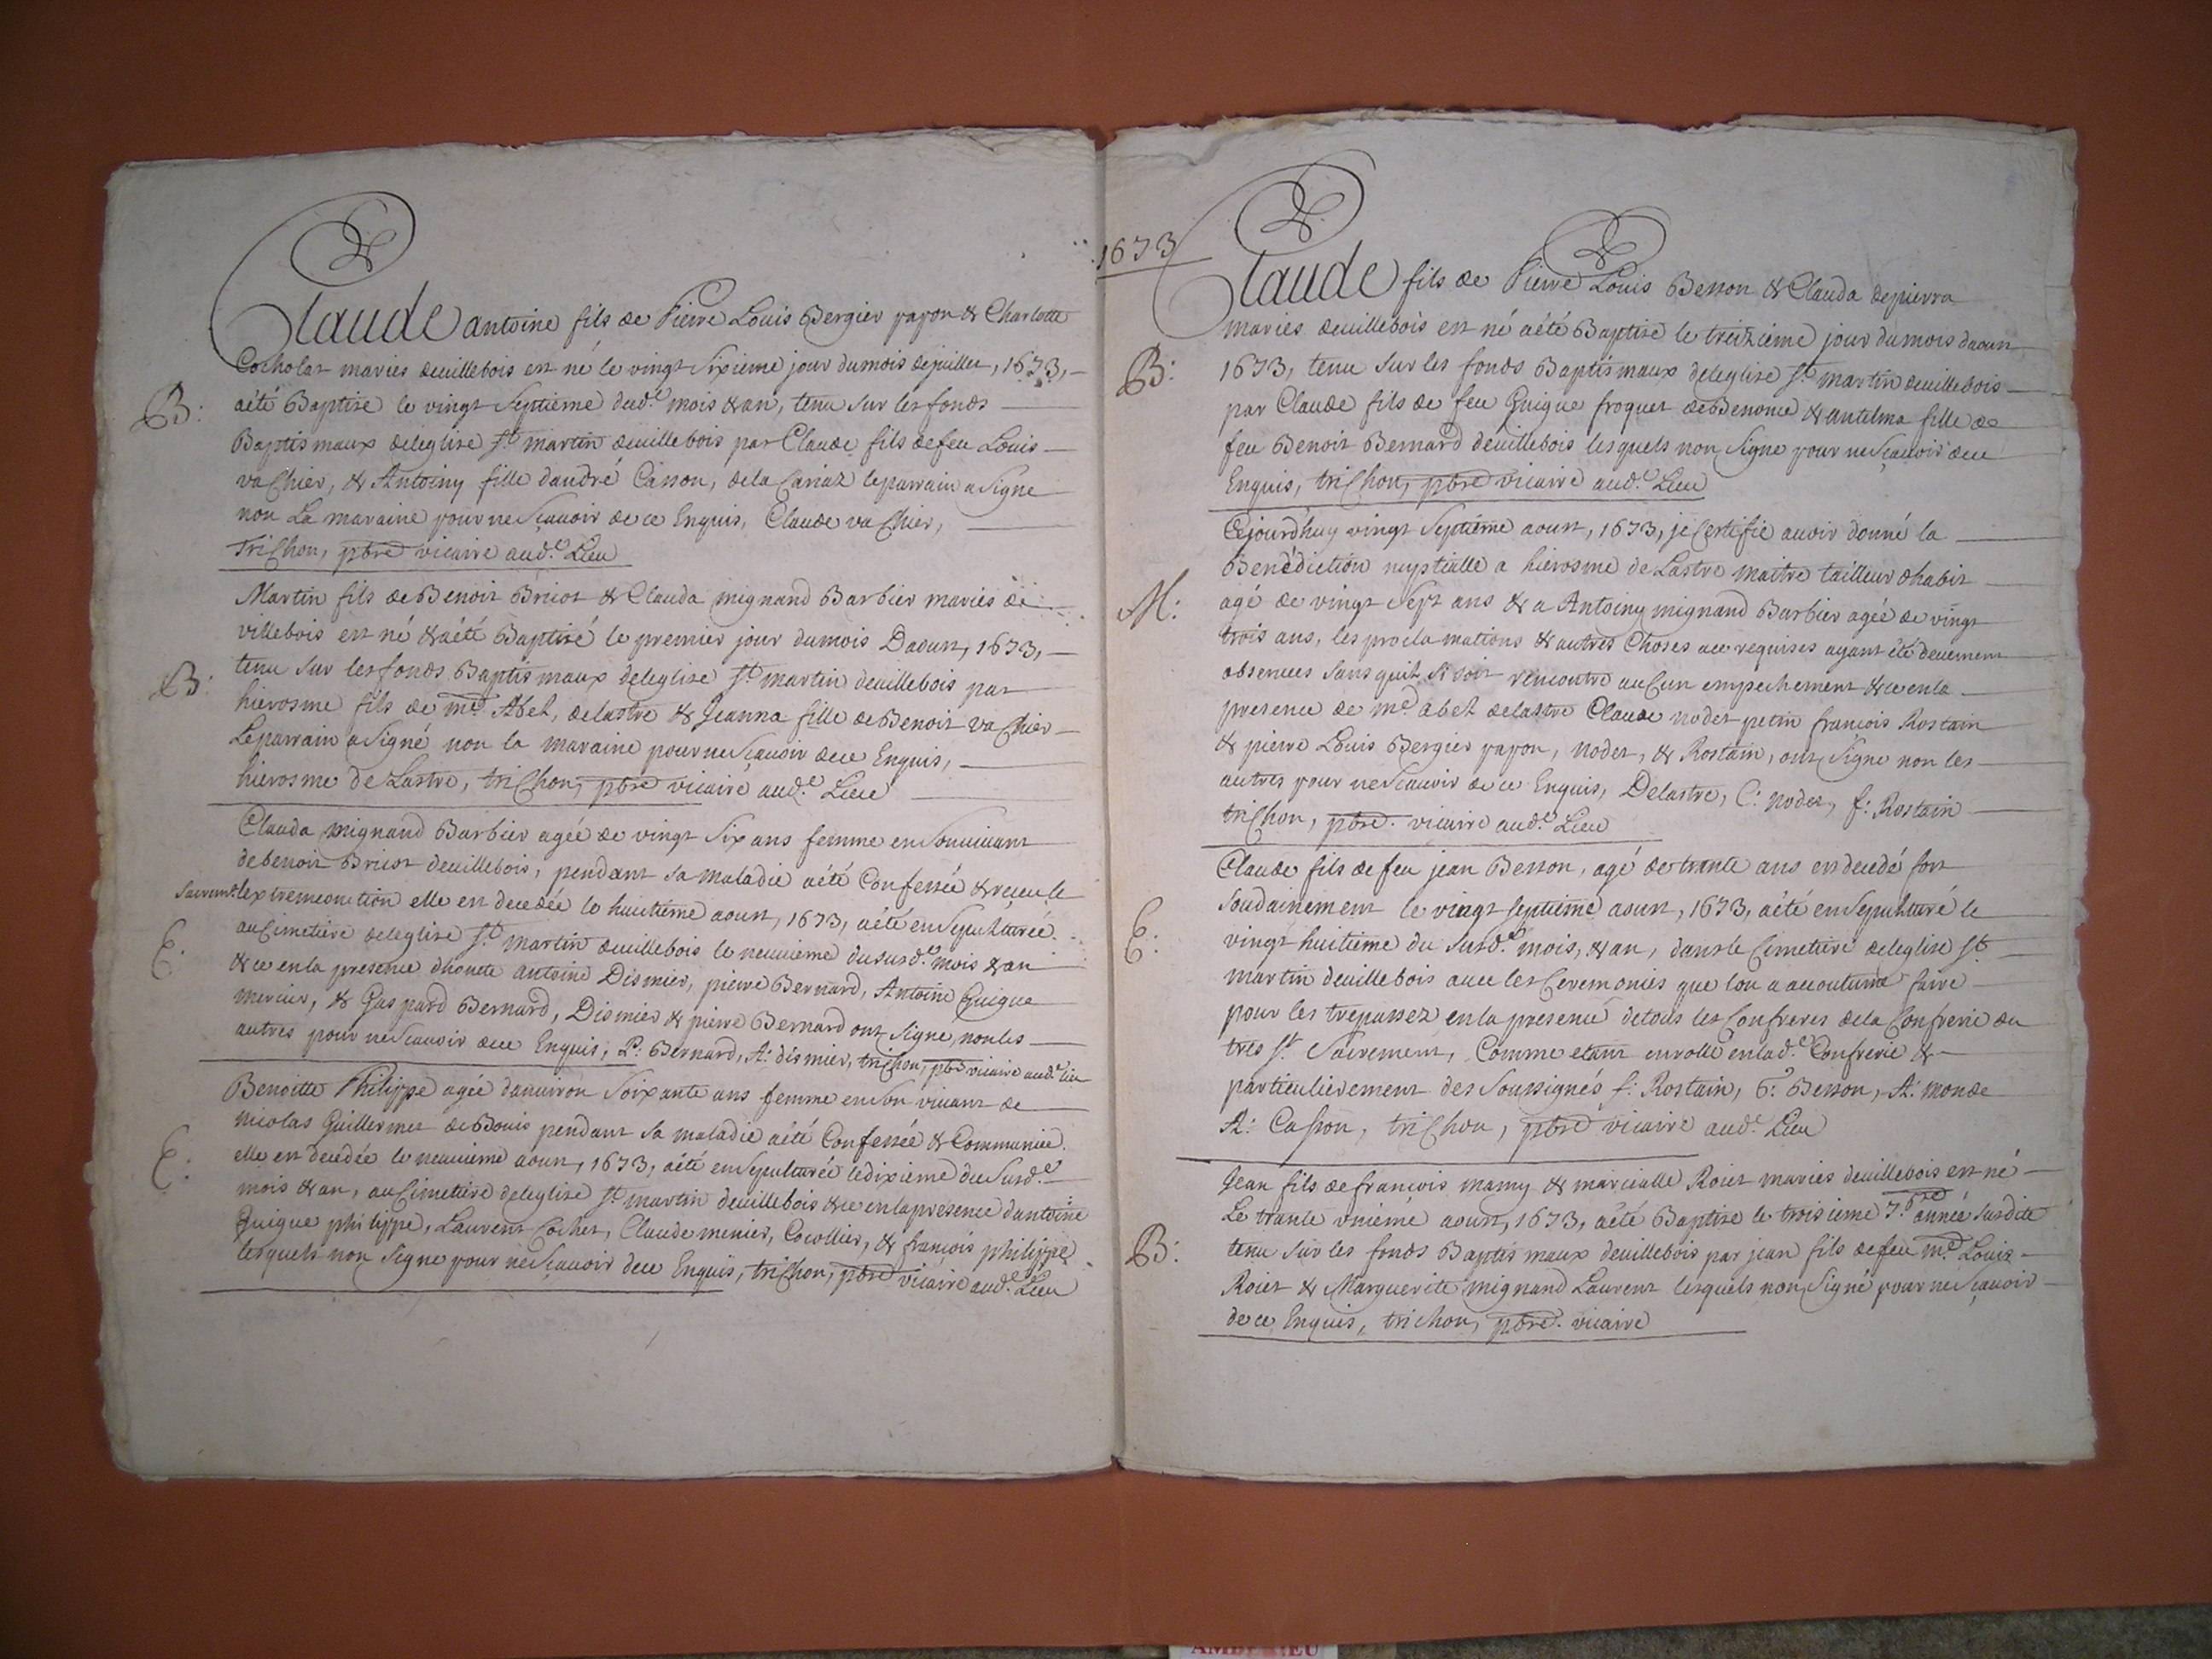 Claude antoine fils de Pierre Louis Bergier payon & Charlotte
Cocholat maries deuillebois est né le vingt Sixieme jour dumois dejuillet, 1673,
B:
aété Baptise le vingt Septieme dud.^t mois & an, tenu sur les fonds
Baptismaux deleglise S.^t martin deuillebois par Claude fils defeu Louis
vachier, & Antoiny fille dandré Casson, dela leparrain a Signe
non La maraine pour ne Scauoir de ce Enquis, Claude vachier,
trichon, pbre vicaire aud.^t Lieu
Martin fils de Benoit Bricot & Clauda mignand Barbier maries de
villebois est né & aété Baptisé le premier jour dumois Daoust, 1673,
B:
tenu sur les fonds Baptismaux deleglise S.^t martin deuillebois par
hierosme fils de m.^e Abel, delastre & Jeanna fille de Benoit vachier
Leparrain a Signé non la maraine pour ne Scauoir dece Enquis,
hierosme de Lastre, trichon, pbre vicaire aud.^t Lieu
Clauda mignand Barbier agée de vingt Six ans femme ensonuiuant
debenoit Bricot deuillebois, pendant sa maladie aété Confessée & receu le
Sacrem.^t lextremeonction elle est decedée le huitiéme aoust, 1673, aété enSepulturée
E:
au Cimetiere deleglise S.^t martin deuillebois le neuuieme dususd.^t mois & an
& ce enla presence dhonete antoine Dismier, pierre Bernard, Antoine Guigue
mercier, & Gaspard Bernard, Dismier & pierre Bernard ont Signe, non les
autres pour ne Scauoir dece Enquis, P: Bernard, A: dismier, trichon, pbre vicaire aud.^t lieu
Benoitte Philippe agée danuiron Soixante ans femme enSon viuant de
nicolas Guillermet de Bouis pendant sa maladie aété Confessée & Communiée
E:
elle est decedée le neuuieme aoust, 1673, aété enSepulturée ledixieme du Susd.^t
mois & an, au Cimetiere deleglise S.^t martin deuillebois & ce enlapresence dantoine
Guigue philippe, Laurent Cochet, Claude menier, Cocollier, & francois philippe
lesquels non Signe pour ne Scauoir dece Enquis, trichon, pbre vicaire aud.^t Lieu
1673
Claude fils de Pierre Louis Besson & Clauda depierra
maries deuillebois est né aété Baptise le treizieme jour dumois daoust
B:
1673, tenu sur les fonds Baptismaux deleglise S.^t martin deuillebois
par Claude fils de feu Guigue froquet de Benonce & antelma fille de
feu Benoit Bernard deuillebois lesquels non Signe pour ne Scauoir dece
Enquis, trichon, pbre vicaire aud.^t Lieu
Cejourdhuy vingt Septiéme aoust, 1673, je Certifie auoir donné la
Benédiction nuptialle a hierosme de Lastre maitre tailleur dhabit
M:
agé de vingt Sept ans & a Antoiny mignand Barbier agée de vingt
trois ans, les proclamations & autres Choses ace requises ayant été deuement
obseruees sans quil si soit rencontre aucun empechement & ce enla
presence de m.^e abel delastre Claude nodet petin françois Rostain
& pierre Louis Bergier payon, nodet, & Rostain, ont Signe non les
autres pour ne Scauoir de ce Enquis, Delastre, C: nodet, f: Rostain
trichon, pbre. vicaire aud.^t Lieu
Claude fils de feu jean Besson, agé de trante ans est decedé fort
E:
Soudainement le vingt septieme aoust, 1673, aété enSepulturé le
vingt huitiéme du susd.^t mois, & an, dansle Cimetiere deleglise S.^t
martin deuillebois auec les Ceremonies que lon a accoutumé faire
pour les trepassez enla presence detous les Confreres dela Confrerie du
tres S.^t Sacrement, Comme etant enrollé enlad.^e Confrerie &
particulierement des Soussignés f: Rostain, C: Besson, A: monde
A: Casson, trichon, pbre vicaire aud.^t Lieu
Jean fils de francois mamy & marcialle Roiet maries deuillebois est né
Le trante vnième aoust, 1673, aété Baptise le troisieme 7.^bre année susdite
B:
tenu sur les fonds Baptismaux deuillebois par jean fils defeu m.^e Louis
Roiet & Marguerite mignand Laurent lesquels non Signé pour ne Scauoir
de ce Enquis, trichon, pbre. vicaire